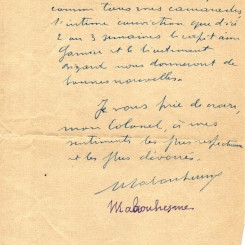 comme tous mes camarades
l'intime conviction que d'ici
2 ou 3 semaines le capitaine
et le lieutenant
nous donneront de
bonnes nouvelles.
Je vous prie de croire,
mon Colonel, à mes
sentiments les plus respectueux
et les plus dévoués.